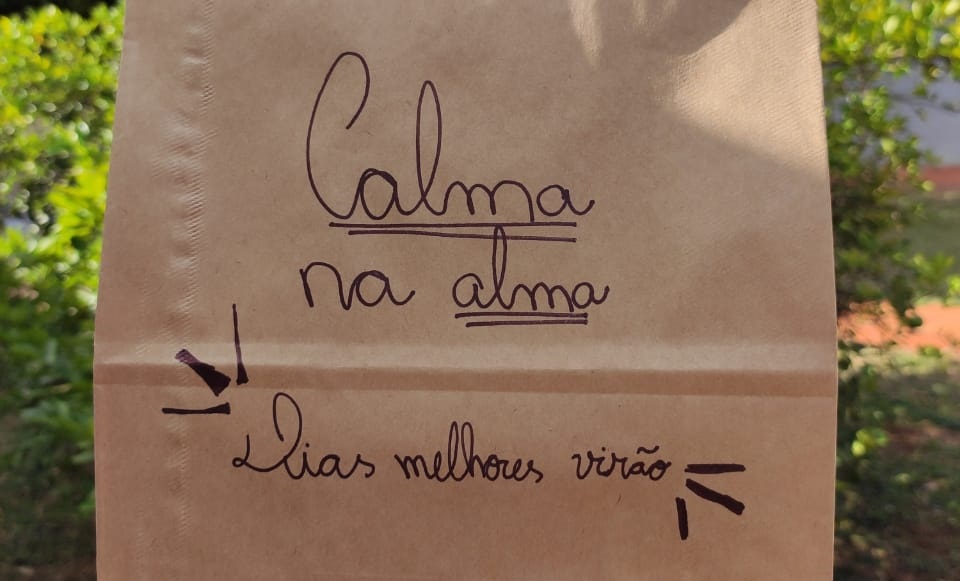 Calma
na alma
Dias melhores virão